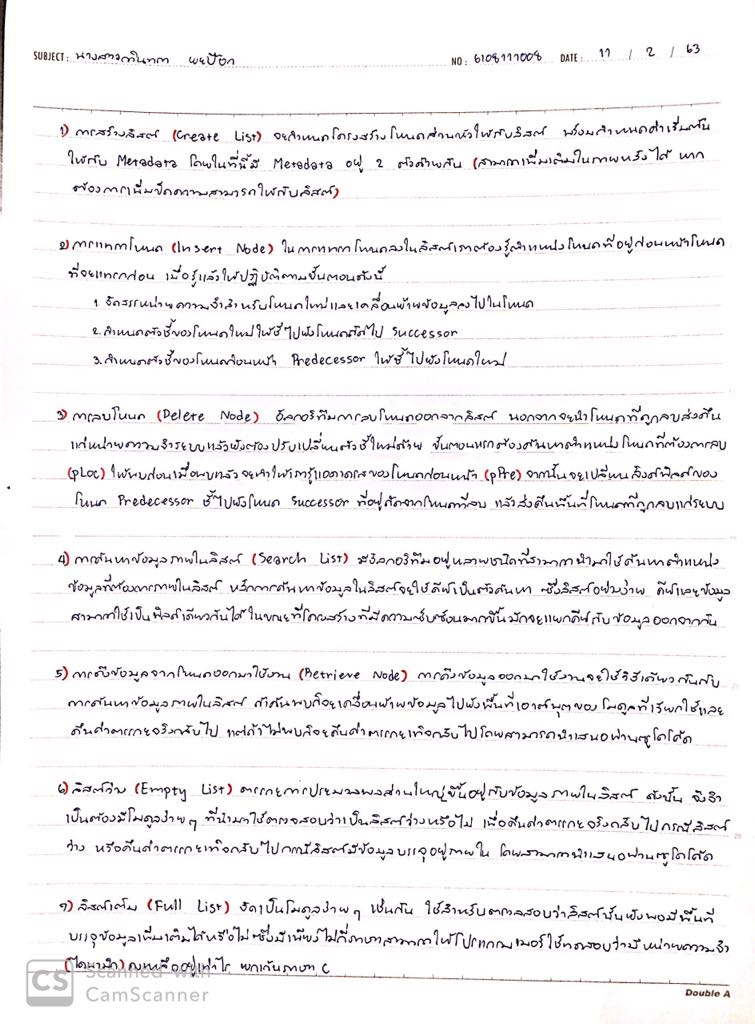 SUBJECT: นางสาวกานิษฐา NO: 6108111008 DATE: 11 / 2 / 63
1) การสร้างลิสต์ (Create List) จะกำหนดโครงสร้างโหนดส่วนหัวให้กับลิสต์ พร้อมกำหนดค่าเริ่มต้น
ให้กับ Metadata โดยในที่นี้มี Metadata อยู่ 2 ตัวด้วยกัน (สามารถเพิ่มเติมในภายหลังได้ หาก
ต้องการเพิ่มขีดความสามารถให้กับลิสต์)
2) การแทรกโหนด (Insert Node) ในการแทรกโหนดลงในลิสต์เราต้องรู้ตำแหน่งโหนดที่อยู่ก่อนหน้าโหนด
ที่จะแทรกก่อน เมื่อรู้แล้วให้ปฏิบัติตามขั้นตอนดังนี้
1. จัดสรรหน่วยความจำสำหรับโหนดใหม่และเคลื่อนย้ายข้อมูลลงไปในโหนด
2. กำหนดตัวชี้ของโหนดใหม่ให้ชี้ไปยังโหนดถัดไป Successor
3. กำหนดตัวชี้ของโหนดก่อนหน้า Predecessor ให้ชี้ไปยังโหนดใหม่
3) การลบโหนด (Delete Node) อัลกอริทึมการลบโหนดออกจากลิสต์ นอกจากจะนำโหนดที่ถูกลบส่งคืน
แก่หน่วยความจำระบบแล้วยังต้องปรับเปลี่ยนตัวชี้ใหม่ด้วย ขั้นตอนแรกต้องค้นหาตำแหน่งโหนดที่ต้องการลบ
(pLoc) ให้พบก่อนเมื่อพบแล้วจะทำให้เรารู้แอดเดรสของโหนดก่อนหน้า (pPre) จากนั้นจะเปลี่ยนลิงค์ฟิลด์ของ
โหนด Predecessor ชี้ไปยังโหนด Successor ที่อยู่ถัดจากโหนดที่ลบ แล้วส่งคืนพื้นที่โหนดที่ถูกลบแก่ระบบ
4) การค้นหาข้อมูลภายในลิสต์ (Search List) มีอัลกอริทึมอยู่หลายชนิดที่สามารถนำมาใช้ค้นหาตำแหน่ง
ข้อมูลที่ต้องการภายในลิสต์ หลักการค้นหาข้อมูลในลิสต์จะใช้คีย์เป็นตัวค้นหา ซึ่งลิสต์อย่างง่าย คีย์และข้อมูล
สามารถใช้เป็นฟิลด์เดียวกันได้ ในขณะที่โครงสร้างที่มีความซับซ้อนมากขึ้นมักจะแยกคีย์กับข้อมูลออกจากกัน
5) การดึงข้อมูลจากโหนดออกมาใช้งาน (Retrieve Node) การดึงข้อมูลออกมาใช้งานจะใช้วิธีเดียวกันกับ
การค้นหาข้อมูลภายในลิสต์ ถ้าค้นพบก็จะเคลื่อนย้ายข้อมูลไปยังพื้นที่เอาต์พุตของโมดูลที่เรียกใช้และ
คืนค่าตรรกะจริงกลับไป แต่ถ้าไม่พบก็จะคืนค่าตรรกะเท็จกลับไปโดยสามารถนำเสนอผ่านซูโดโค้ด
6) ลิสต์ว่าง (Empty List) ตรรกะการประมวลผลส่วนใหญ่ขึ้นอยู่กับข้อมูลภายในลิสต์ ดังนั้น จึงจำ
เป็นต้องมีโมดูลง่ายๆ ที่นำมาใช้ตรวจสอบว่าเป็นลิสต์ว่างหรือไม่ เพื่อคืนค่าตรรกะจริงกลับไปกรณีลิสต์
ว่าง หรือคืนค่าตรรกะเท็จกลับไปกรณีลิสต์มีข้อมูลบรรจุอยู่ภายใน โดยสามารถนำเสนอผ่านซูโดโค้ด
7) ลิสต์เต็ม (Full List) จัดเป็นโมดูลง่ายๆ เช่นกัน ใช้สำหรับตรวจสอบว่าลิสต์นั้นยังพอมีพื้นที่
บรรจุข้อมูลเพิ่มเติมได้หรือไม่ ซึ่งมีเพียงไม่กี่ภาษาสามารถให้โปรแกรมเมอร์ใช้ทดสอบว่ามีหน่วยความจำ
(ไดนามิก) คงเหลืออยู่เท่าไร ยกเว้นภาษา C
CS Scanned with
CamScanner
Double A